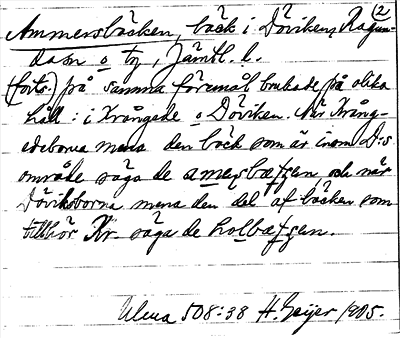 Ammersbäcken, bäck i Döviken, Ragun- (2)
da sn o tg, Jämtl. l.
(forts.) på samma föremål brukade på olika
håll: i Krångede o Döviken. När Krång-
edeborna mena den bäck som är inom D:s
område säga de och när
Döviksborna mena den del af bäcken som
tillhör Kr. säga de
Ulma 508:38 H. Geijer 1905.